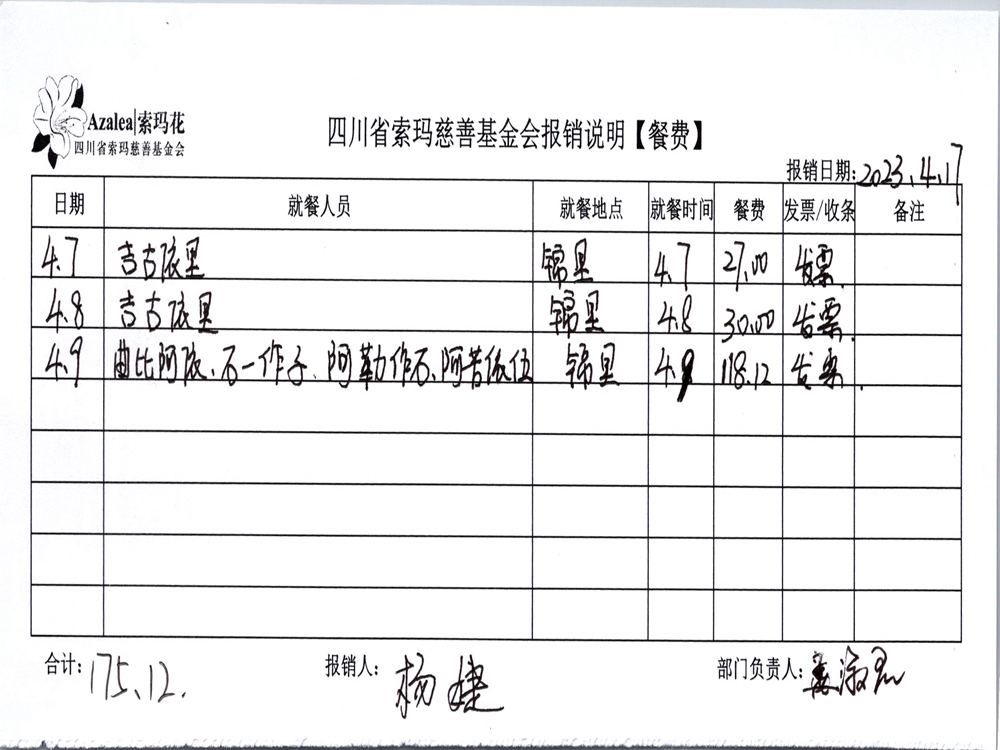 Azalea|索玛花
四川省索玛慈善基金会
四川省索玛慈善基金会报销说明【餐费】
报销日期:2023.4.17
日期 就餐人员 就餐地点 就餐时间 餐费 发票/收条 备注
4.7 吉古依里 锦里 4.7 27.00 发票.
4.8 吉古依里 锦里 4.8 30.00 发票.
4.9 曲比阿依、石一作子、阿勒作石、阿苦依伍 锦里 4.9 118.12 发票.
合计:175.12. 报销人:杨婕 部门负责人: